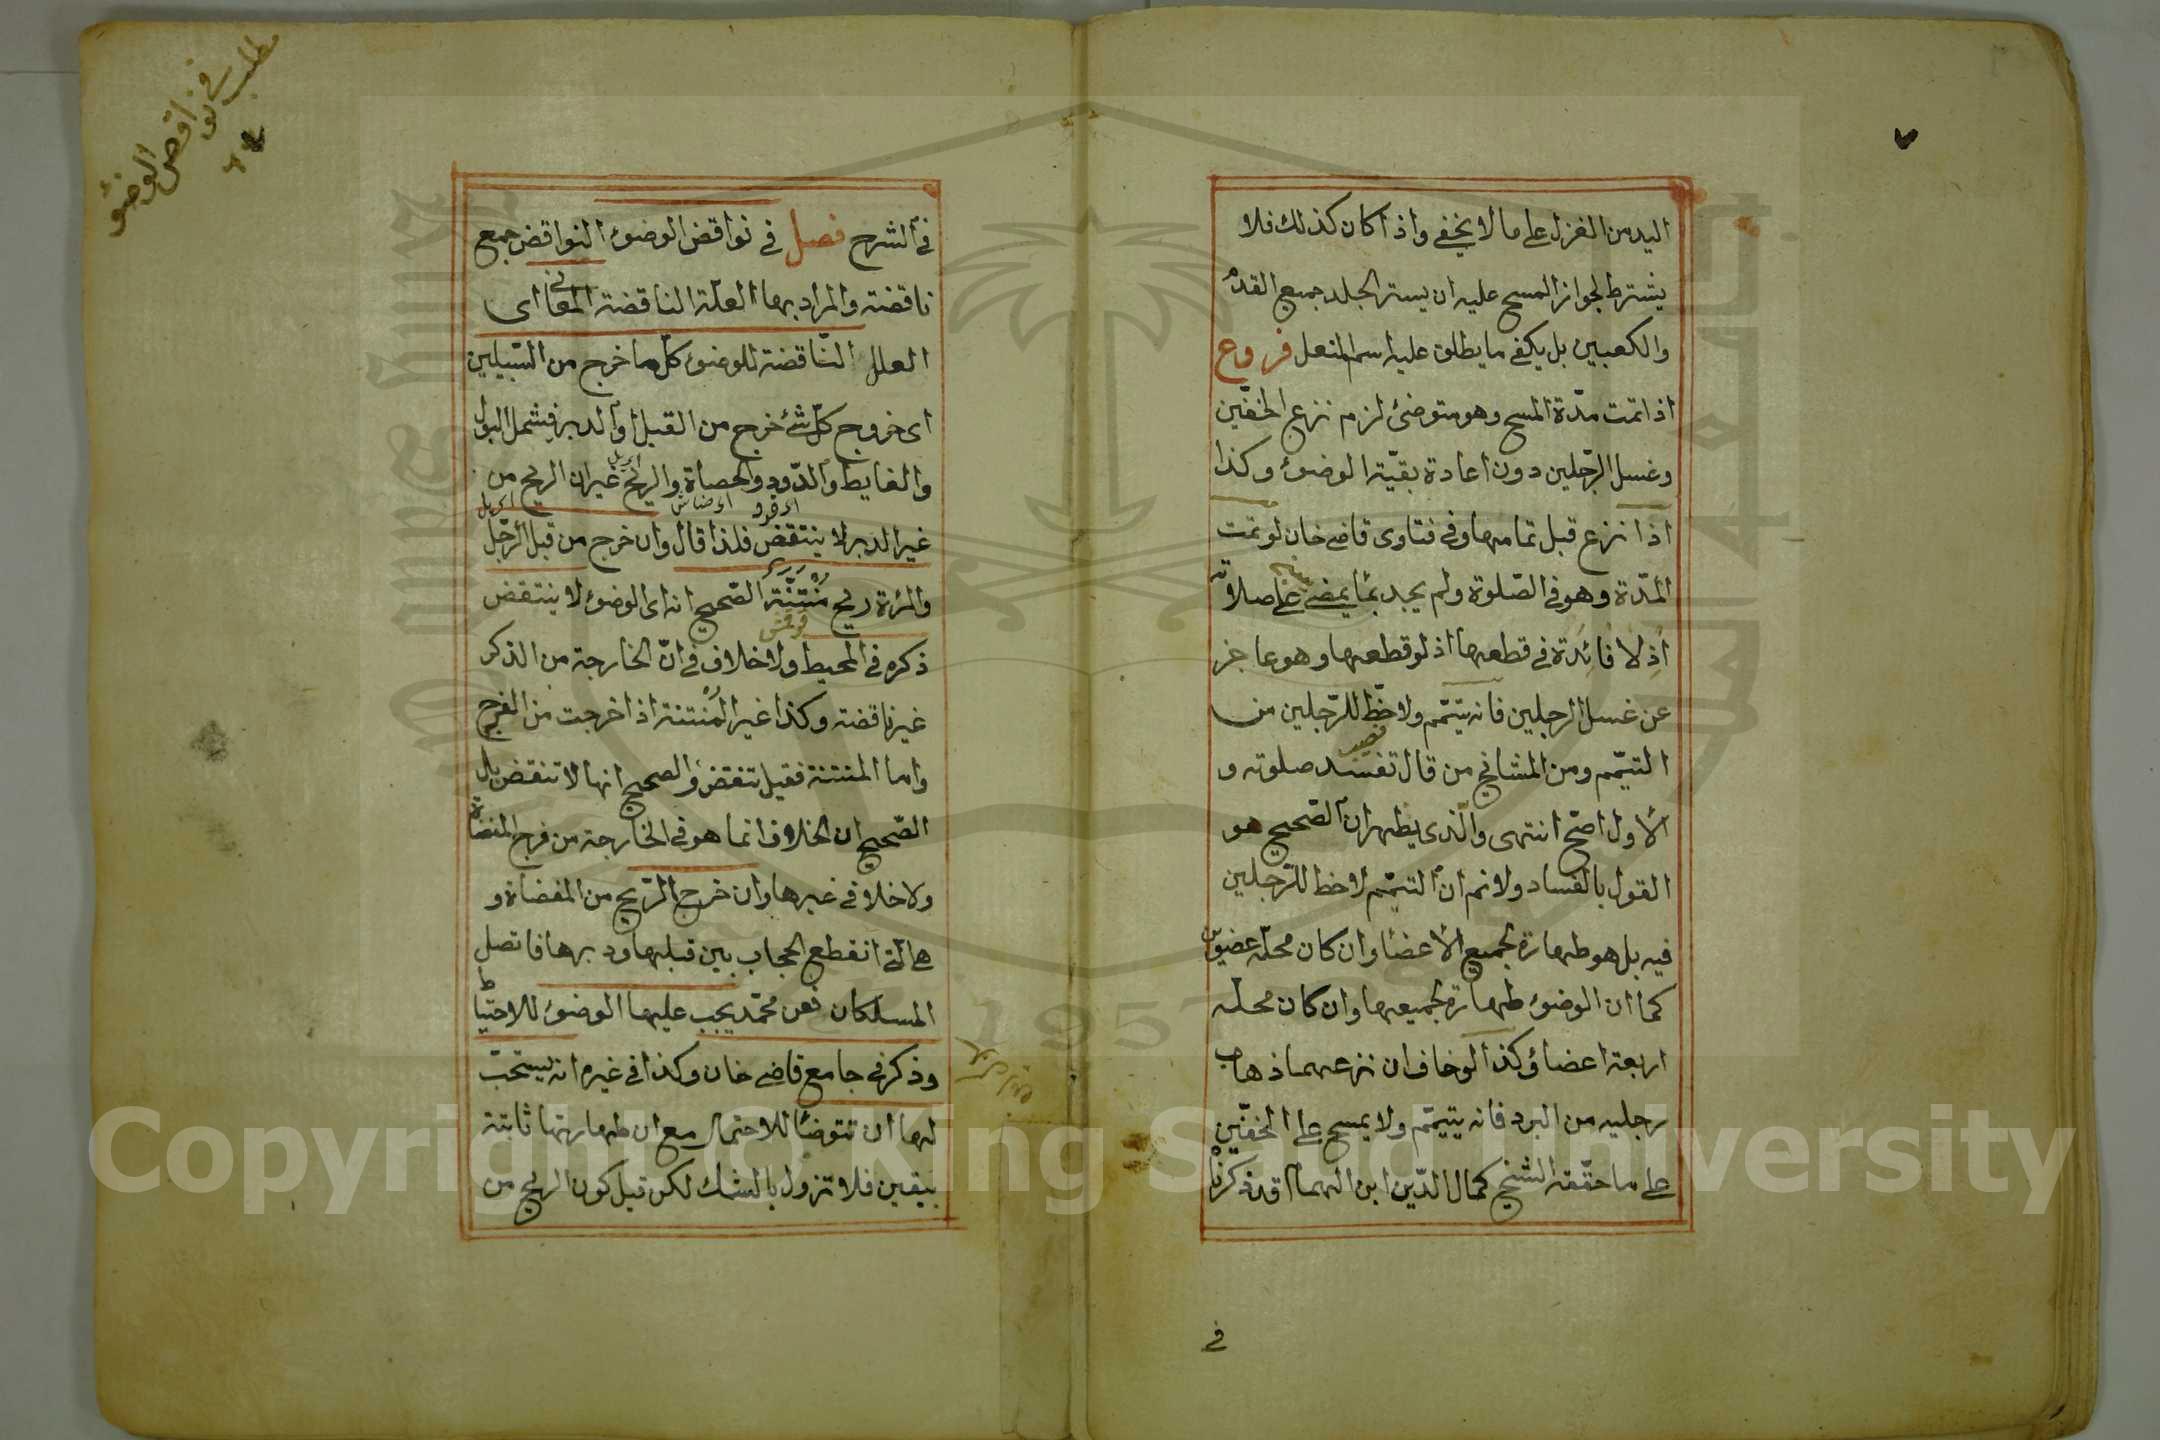 اليد من الغزل على ما لا يخفى واذا كان كذلك فلا
يشترط لجواز المسح عليه ان يستر الجلد جميع القدم
والكعبين بل يكفى ما يطلق عليه اسم المنعل فروع
اذا تمت مدّة المسح وهو متوضئ لزم نزع الخفّين
وغسل الرّجلين دون اعادة بقيّة الوضوء وكذا
اذا نزع قبل تمامها وفى فتاوى قاضى خان لو تمت
المدّة وهو فى الصّلوة ولم يجد ماء يمضى على صلاته
اذ لا فائدة فى قطعها اذ لو قطعها وهو عاجز
عن غسل الرجلين فانه يتيّمم ولا حظّ للرّجلين من
التيمّم ومن المشائخ من قال تفسد صلوته و
الاول اصحّ انتهى والّذى يظهر ان الصّحيح هو
القول بالفساد ولا نم ان التيمّم لا حظ للرّجلين
فيه بل هو طهارة لجميع الاعضاء وان كان محله عضوين
كما ان الوضوء طهارة لجميعها وان كان محله
اربعة اعضاء وكذا لو خاف ان نزعهما ذهاب
رجليه من البرد فانه يتيمّم ولا يمسح على الخفّين
على ما حقّقه الشيخ كمال الدّين ابن الهمام قد ذكرناه
فى
مطلب فى نواقض الوضوء
فى الشرح فصل فى نواقض الوضوء النواقض جمع
ناقضة والمراد بها العلّة الناقضة المعانى اى
العلل النّاقضة للوضوء كلّ ما خرج من السّبيلين
اى خروج كلّ شئ خرج من القبل او الدبر فيشمل البول
والغايط والدّود والحصاة والريح غير ان الريح من
غير الدبر لا ينتقض فلذا قال وان خرج من قبل الرّجل
والمرءة ريح مُنْتِنَة الصّحيح انه اى الوضوء لا ينتقض
ذكره فى المحيط ولا خلاف فى انّ الخارجة من الذكر
غير ناقضة وكذا غير المُنتنة اذا خرجت من الفرج
واما المنتنة فقيل تنقض والصحيح انها لا تنقض بل
الصّحيح ان الخلاف انما هو فى الخارجة من فرج المفضاة
ولا خلاف فى غيرها وان خرج الرّيح من المفضاة و
هى الّتى انقطع الحجاب بين قبلها ودبرها فاتصل
المسلكان فعن محمّد يجب عليها الوضوء للاحتياط
وذكر فى جامع قاضى خان وكذا فى غيره انه يستحبّ
لها ان تتوضأ للاحتمال مع ان طهارتها ثابتة
بيقين فلا تزول بالشك لكن قيل كون الريح من
Copyright © King Saud University
1957